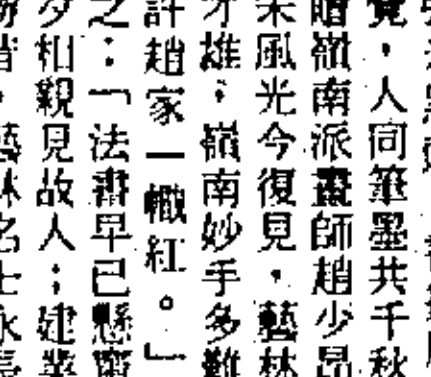 覺，人同筆墨共千秋
贈嶺南派畫師趙少昂
采風光今復見，藝林
才雄；嶺南妙手多難
許趙家一幟紅。」
之：「法書早已懸齋
夕相親見故人；建業
藝林名士永長